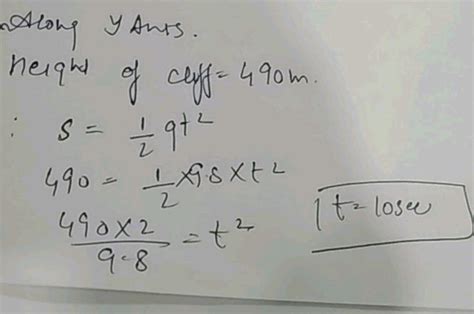 Along Y Axis.
Height of cliff = 490m.
∴ S = 1/2 gt²
490 = 1/2 × 9.8 × t²
490×2/9.8 = t²
t = 10sec